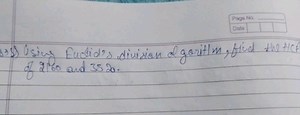 Page No.
Date
Using Euclid's division algorithm, find the HCF
of 2160 and 3520.